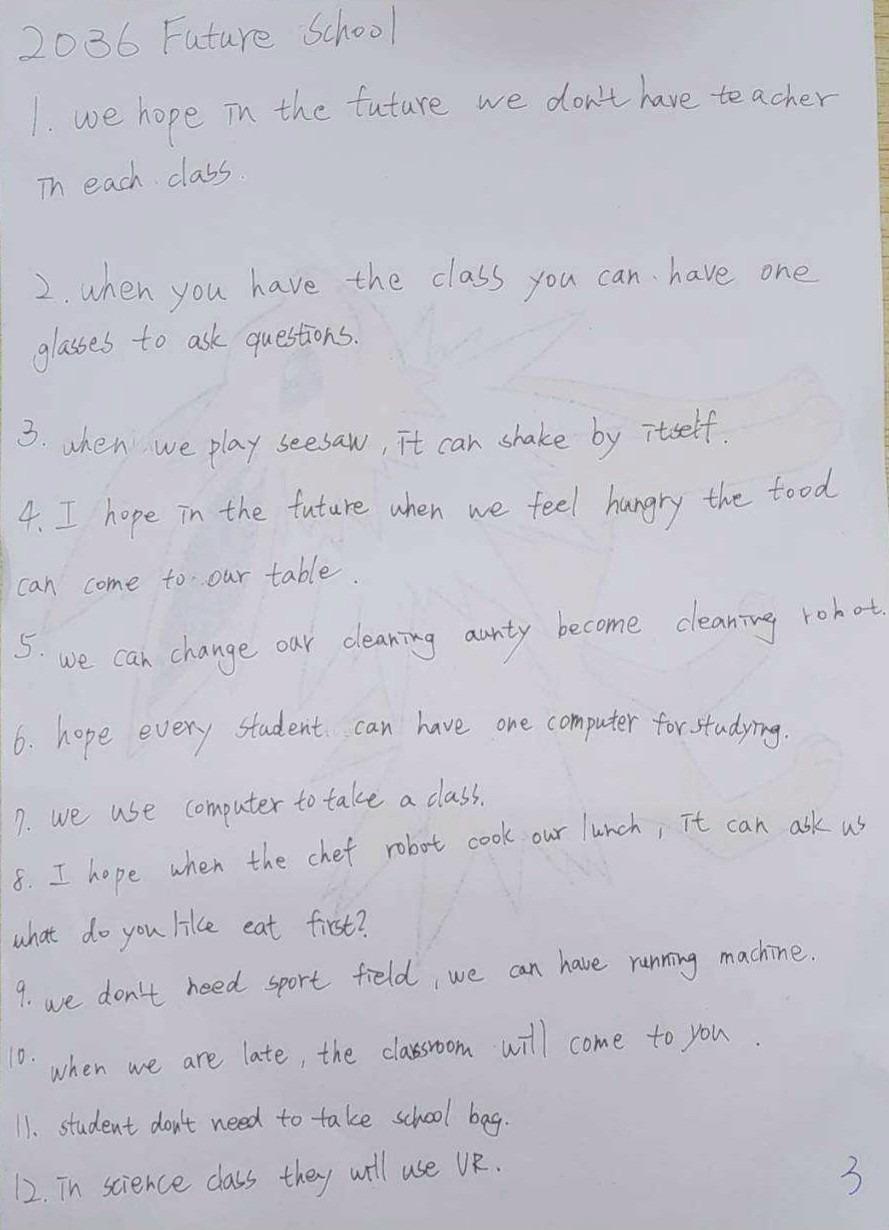 2036 Future School
1. we hope in the future we don't have teacher
in each class.
2. when you have the class you can have one
glasses to ask questions.
3. when we play seesaw, it can shake by itself.
4. I hope in the future when we feel hungry the food
can come to our table.
5. we can change our cleaning aunty become cleaning robot.
6. hope every student can have one computer for studying.
7. we use computer to take a class.
8. I hope when the chef robot cook our lunch, it can ask us
what do you like eat first?
9. we don't need sport field, we can have running machine.
10. when we are late, the classroom will come to you.
11. student don't need to take school bag.
12. in science class they will use VR.
3